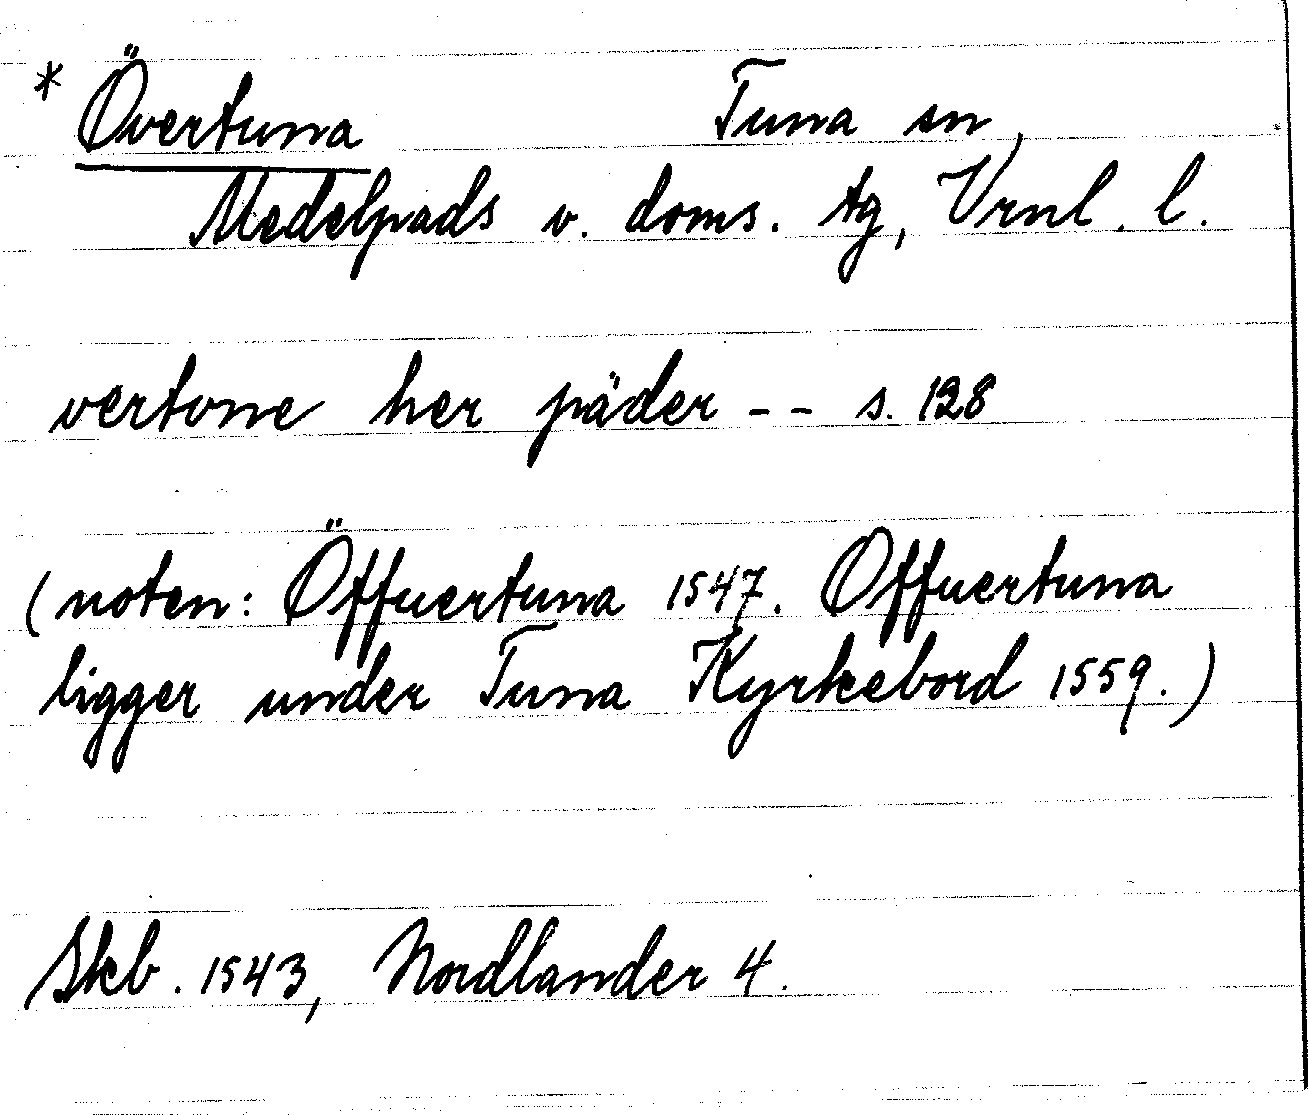 * Övertuna Tuna sn,
Medelpads v. doms. tg, Vrnl. l.
vertone her päder -- s. 128
(noten: Öffuertuna 1547. Offuertuna
ligger under Tuna Kyrkebord 1559.)
Skb. 1543, Nordlander 4.